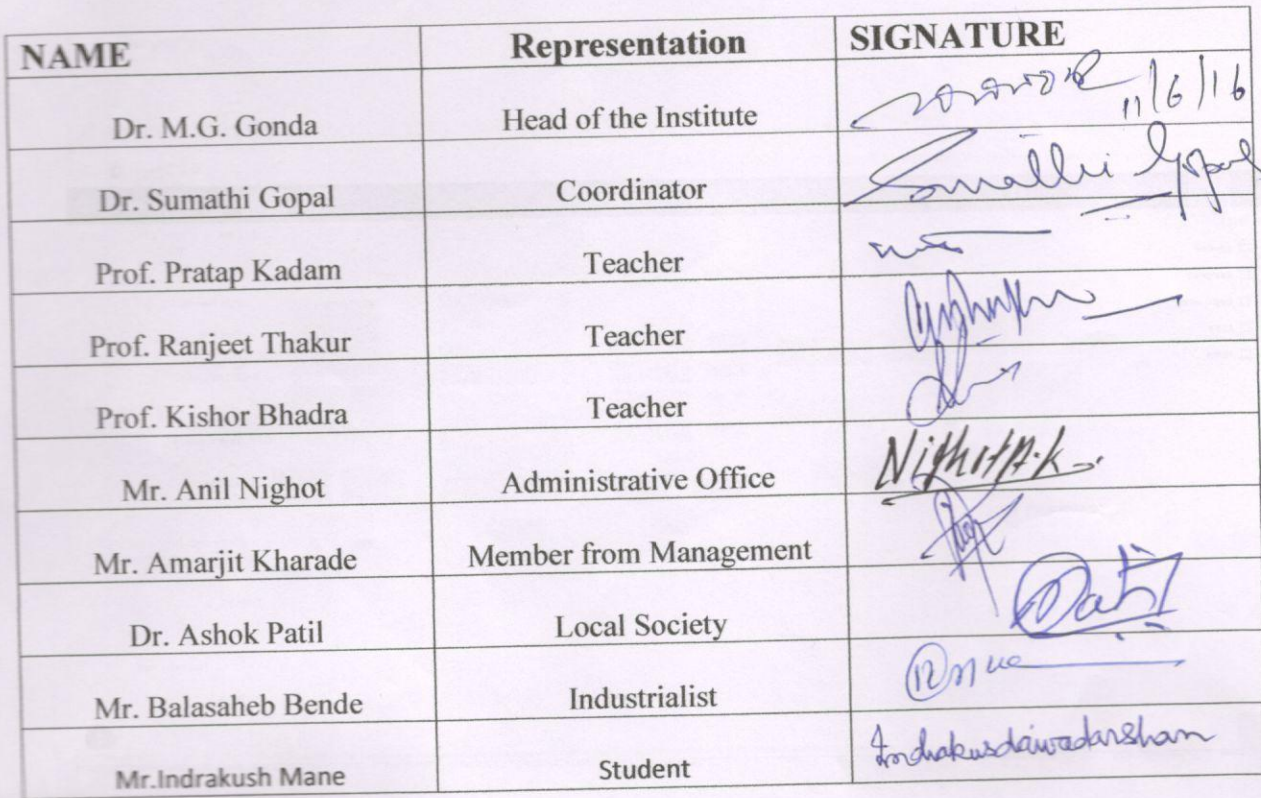 NAME Representation SIGNATURE
Dr. M.G. Gonda Head of the Institute 11/6/16
Dr. Sumathi Gopal Coordinator Sumathi Gopal
Prof. Pratap Kadam Teacher
Prof. Ranjeet Thakur Teacher
Prof. Kishor Bhadra Teacher
Mr. Anil Nighot Administrative Office
Mr. Amarjit Kharade Member from Management
Dr. Ashok Patil Local Society
Mr. Balasaheb Bende Industrialist
Mr.Indrakush Mane Student